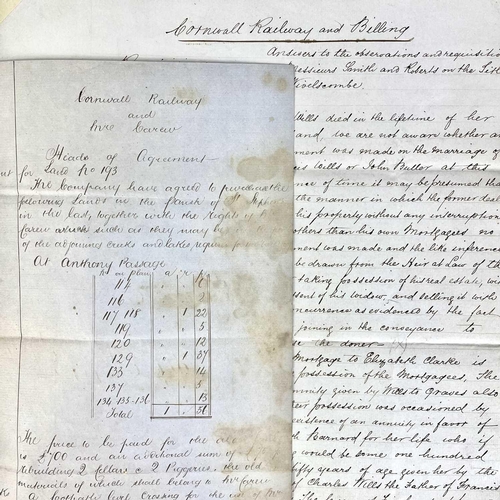 Cornwall Railway and Billing
Answers to the observations and requisitions
Messieurs Smith and Roberts on the Title
Wivelscombe.
Wills died in the lifetime of her
and we are not aware whether an
ment was made on the marriage of
Wills or John Buller at this
nce of time it may be presumed that
the manner in which the former deal
his property without any interruption
others than his own Mortgagees no
ment was made and the like inference
be drawn from the Heir at Law of the
taking possession of his real estate, with
sent of his widow, and selling it with
ncurrence as evidenced by the fact
joining in the conveyance to
the doner
Mortgage to Elizabeth Clarke is
possession of the Mortgagees, The
nuity given by Wills to Graves also
possession was occasioned by
existence of an annuity in favor of
Barnard for her life who if
would be some one hundred
fifty years of age given her by the
of Charles Wills the Father of Francis
Cornwall Railway
and
Mrs Carew
Heads of Agreement
for Land No 193
The Company have agreed to purchase the
following Lands in the Parish of
in the bed, together with the Rights of
Carew
of the adjoining creeks and lakes,
At Anthony Passage
No on plan a r p
114
116
117 118 " 1 22
119 " " 5
120 " " 12
129 " 1 37
133 " " 14
137 " " 5
134 135 136 " " 13
Total 1 " 31
The price to be paid for the
is £700 and an additional sum of
rebuilding 2 pillars & 2 Piggeries, the old
materials of which shall belong to Mrs Carew
A footpath Level Crossing for the use of Mrs